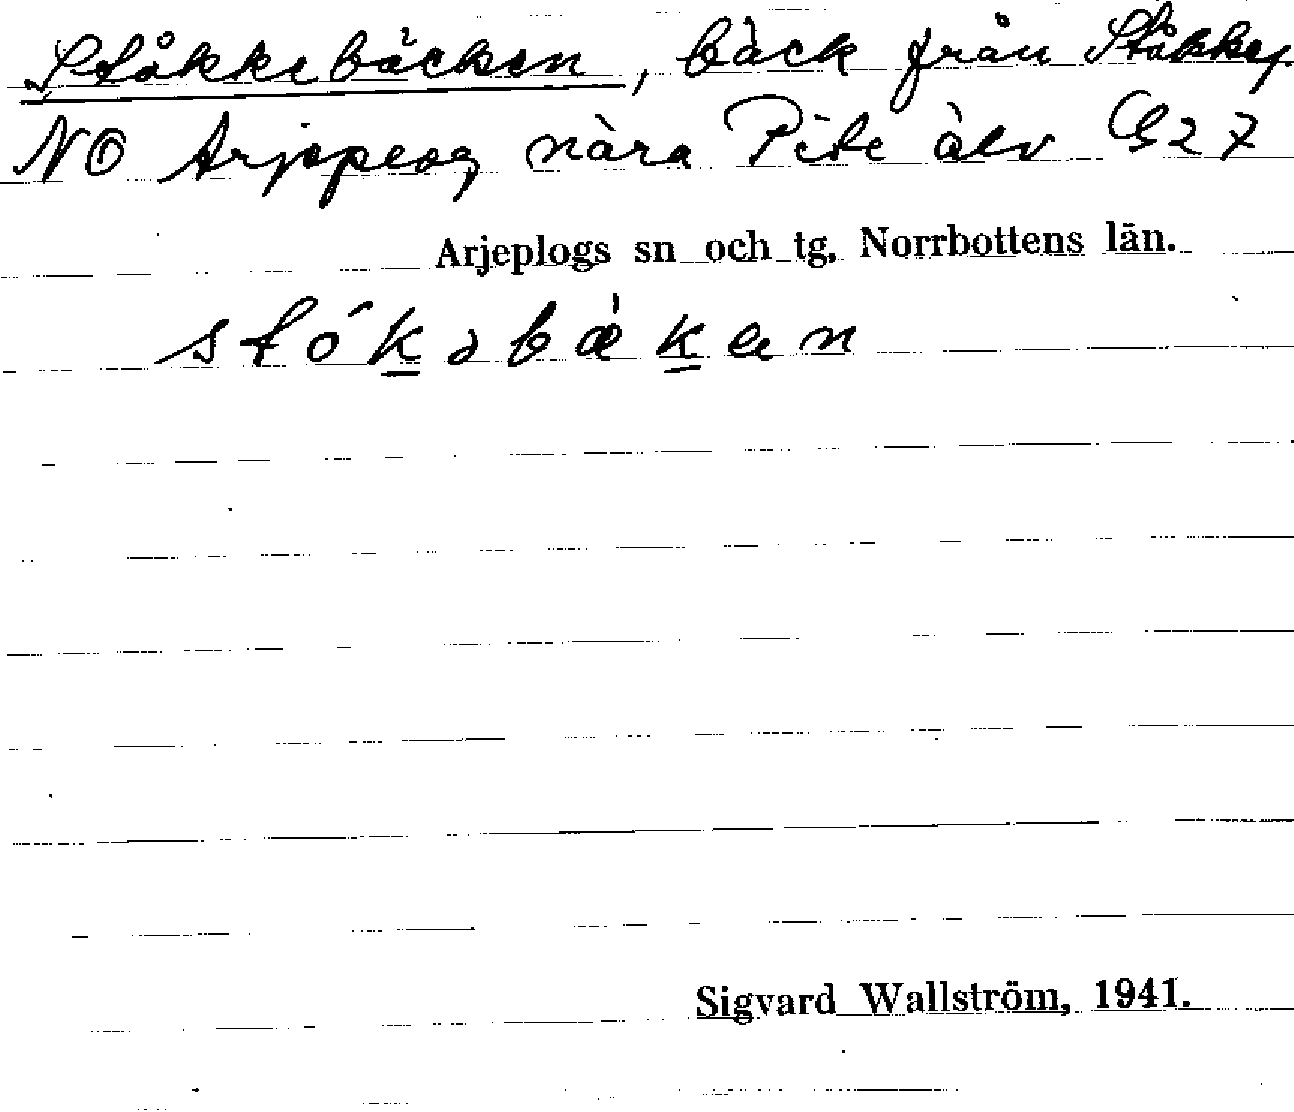 Ståkkebäcken, bäck från Ståkkej.
NO Arjepeog nära Pite älv G27
Arjeplogs sn och tg, Norrbottens län.
stókəbæ̀ken
Sigvard Wallström, 1941.